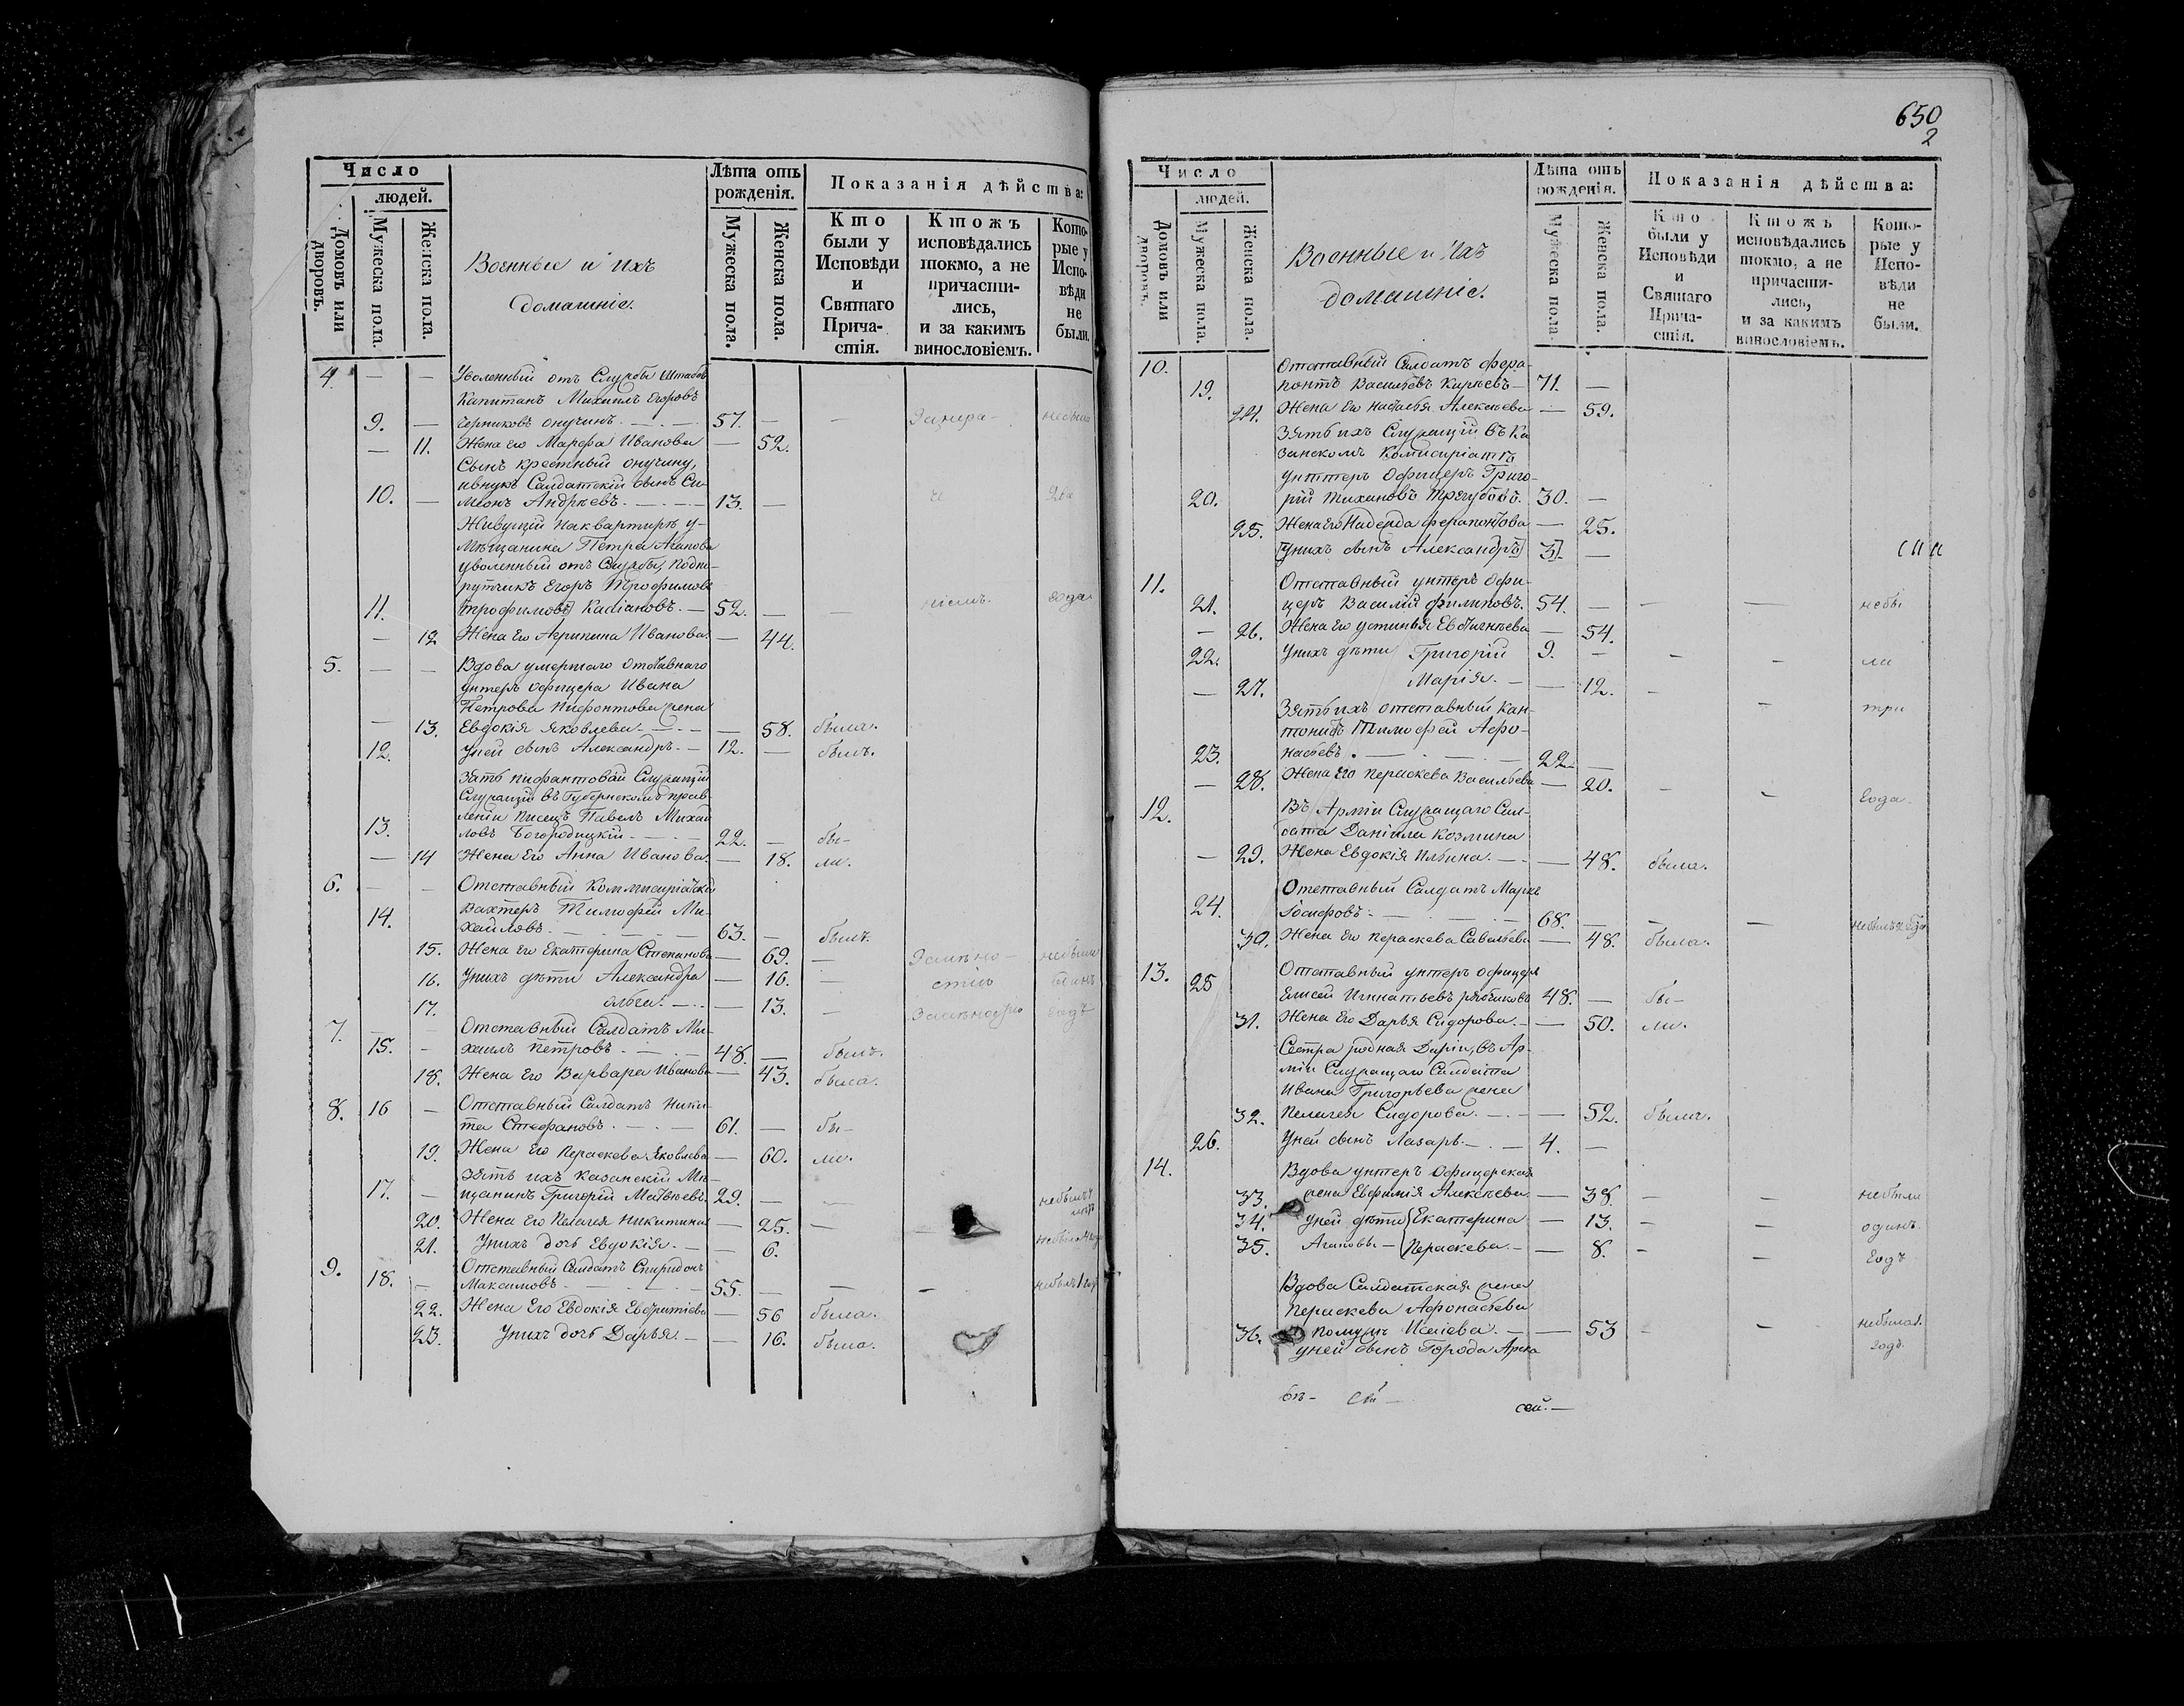 Число
людей.
Домовъ или дворовъ.
Мужеска пола.
Женска пола.
Военные и ихъ
домашніе.
Лѣта отъ
рожденія.
Мужеска пола.
Женска пола.
Показанія дѣйства:
Кто
были у
Исповѣди
и
Святаго
Прича-
стія.
Ктожъ
исповѣдались
токмо, а не
причасти-
лись,
и за какимъ
винословіемъ.
Кото-
рые у
Испо-
вѣди
не
были.
4. — — Уволенный отъ Службы Штабсъ
Капитанъ Михаилъ Егоровъ
9. — 57. — —
— 11. Жена его Марфа Иванова — 52.
Сынъ крестный онучину,
Салдатскій сынъ Си-
10. — меонъ Андреевъ. — 13. — два
Живущій на квартирѣ у
Мѣщанина Петра Агапова
уволенный отъ Службы Подпо-
рутчикъ Егоръ Трофимовъ
11. (трофимовъ) Касіановъ. — 52. — — года
— 12 Жена его Агрипина Иванова. — 44.
5. — — Вдова умершаго отставнаго
унтеръ офицера Ивана
Петрова Нифонтова жена
— 13. Евдокія Яковлева. — — 58. была.
12. у ней сынъ Александръ. — 12. — былъ.
Зять Служащій
Служащій въ Губернскомъ прав-
леніи писецъ Павелъ Михай
13. ловъ Богородицкій. — 22. — бы-
— 14 Жена Его Анна Иванова. — 18. ли.
6. — — Отставный Коммисаріатскій
14. Вахтеръ Тимофей Ми-
хайловъ. — 63. — былъ.
15. Жена Его Екатерина Степанова — 69. —
16. У нихъ дѣти Александра — 16. —
17. Ольга. — — 13. — годъ
7. — — Отставный Салдатъ Ми-
15. - хаилъ Петровъ. — 48. — былъ.
18. Жена Его Варвара Иванова — 43. была.
8. 16 — Отставный Салдатъ Ники-
та Стефановъ. — 61. — бы-
19. Жена Его Пераскева Яковлева — 60. ли.
Зять ихъ Казанскій Мѣ-
17. — щанинъ Григорій Матвѣевъ. 29. — —
20. Жена Его Пелагея Никитина — 25. —
21. У нихъ дочь Евдокія. — — 6. —
9. Отставный Салдатъ Спиридонъ
18. — Максимовъ. — 55. — — —
22. Жена Его Евдокія — 56 была.
23. У нихъ дочь Дарья. — — 16. была.
650
2
Число
людей.
Домовъ или дворовъ.
Мужеска пола.
Женска пола.
Военные и ихъ
домашніе.
Лѣта отъ
рожденія.
Мужеска пола.
Женска пола.
Показанія дѣйства:
Кто
были у
Исповѣди
и
Святаго
Прича-
стія.
Ктожъ
исповѣдались
токмо, а не
причасти-
лись,
и за какимъ
винословіемъ.
Кото-
рые у
Испо-
вѣди
не
были.
10. Отставный Салдатъ Фера-
19. понтъ Васильевъ Кирѣевъ — 71. —
24. Жена Его Настасья Алексѣева — 59.
Зять ихъ Служащій въ Ка
занскомъ Комисаріатѣ
унтеръ Офицеръ Григо-
20. рій Тихановъ 30. —
25. Жена Его Надежда Ферапонтова — 25.
(У нихъ сынъ Александръ) 3. —
11. Отставный унтеръ Офи-
21. церъ Василій Филиповъ. 54. — — — небы
— 26. Жена Его Устинья — 54.
22. У нихъ дѣти Григорій 9. — — — ли
— 27. Марія. — — 12. —
Зять ихъ отставный Кан- — три
тонистъ Тимофей Афо-
23. насьевъ. — 22 —
— 28. Жена Его Пераскева Васильева — 20. — — года.
12. Въ Арміи Служащаго Сал-
дата Даніила Козмина
— 29. Жена Евдокія Ильина. — — 48. была.
Отставный Салдатъ Маркъ
24. Іосифовъ. — 68. — — —
30. Жена Его Пераскева Савельева — 48. была.
13. 25 Отставный унтеръ офицеръ
Елисей Игнатьевъ 48. — бы-
31. Жена Его Дарья Сидорова. — — 50. ли.
Сестра родная Даріи, въ Ар-
міи Служащаго Салдата
Ивана Григорьева жена
32. Пелагея Сидорова. — — 52. была.
26. У ней сынъ Лазарь. — 4. —
14. Вдова унтеръ Офицерская
33. жена Евфимія Алексѣева. — 38. — — небыли
34. У ней дѣти Екатерина — 13. - - одинъ.
35. Агаповы — Пераскева. — — 8. - — годъ
Вдова Салдатская жена
Пераскева Афонасьева
36. Исаіева. — — 53 - — небыла 1.
у ней сынъ Города Арска годъ.